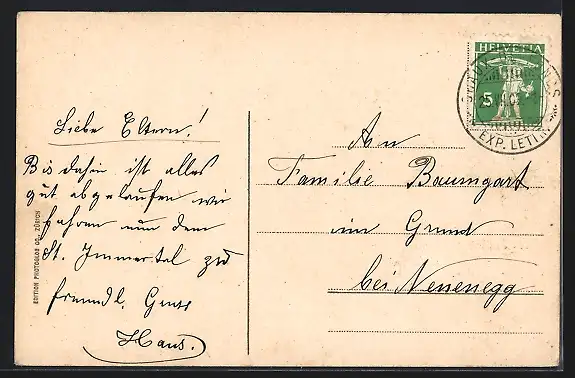 HELVETIA
5
EXP. LETTR.
Liebe Eltern!
Bis dahin ist alles
gut abgelaufen wir
fahren nun dem
St. Immertal zu
freundl. Gruss
Hans.
An
Familie Baumgart
im Grund
bei Neuenegg
EDITION PHOTOGLOB CO., ZÜRICH